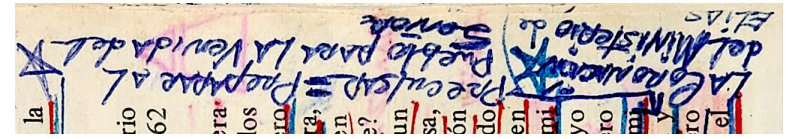 LA Coronacion
del MINISTERIO de
ELIAS
Precursor = Preparar AL
Pueblo para LA Venida del
Señor
la
rio
62
era
los
ero
ra,
en
e?
un
sa,
ón
do
en
mi
yo
ero
mi
y
ero
el